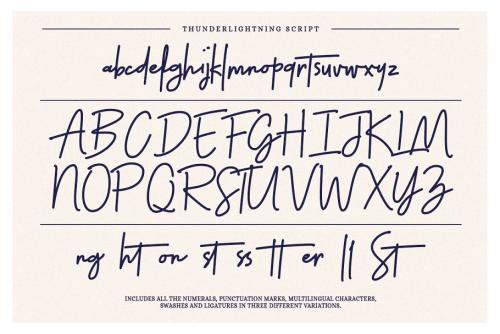 THUNDERLIGHTNING SCRIPT
abcdefghijklmnopqrtsuvwxyz
ABCDEFGHIJKLM
NOPQRSTUVWXYZ
ng ht on st ss tt er ll St
INCLUDES ALL THE NUMERALS, PUNCTUATION MARKS, MULTILINGUAL CHARACTERS,
SWASHES AND LIGATURES IN THREE DIFFERENT VARIATIONS.